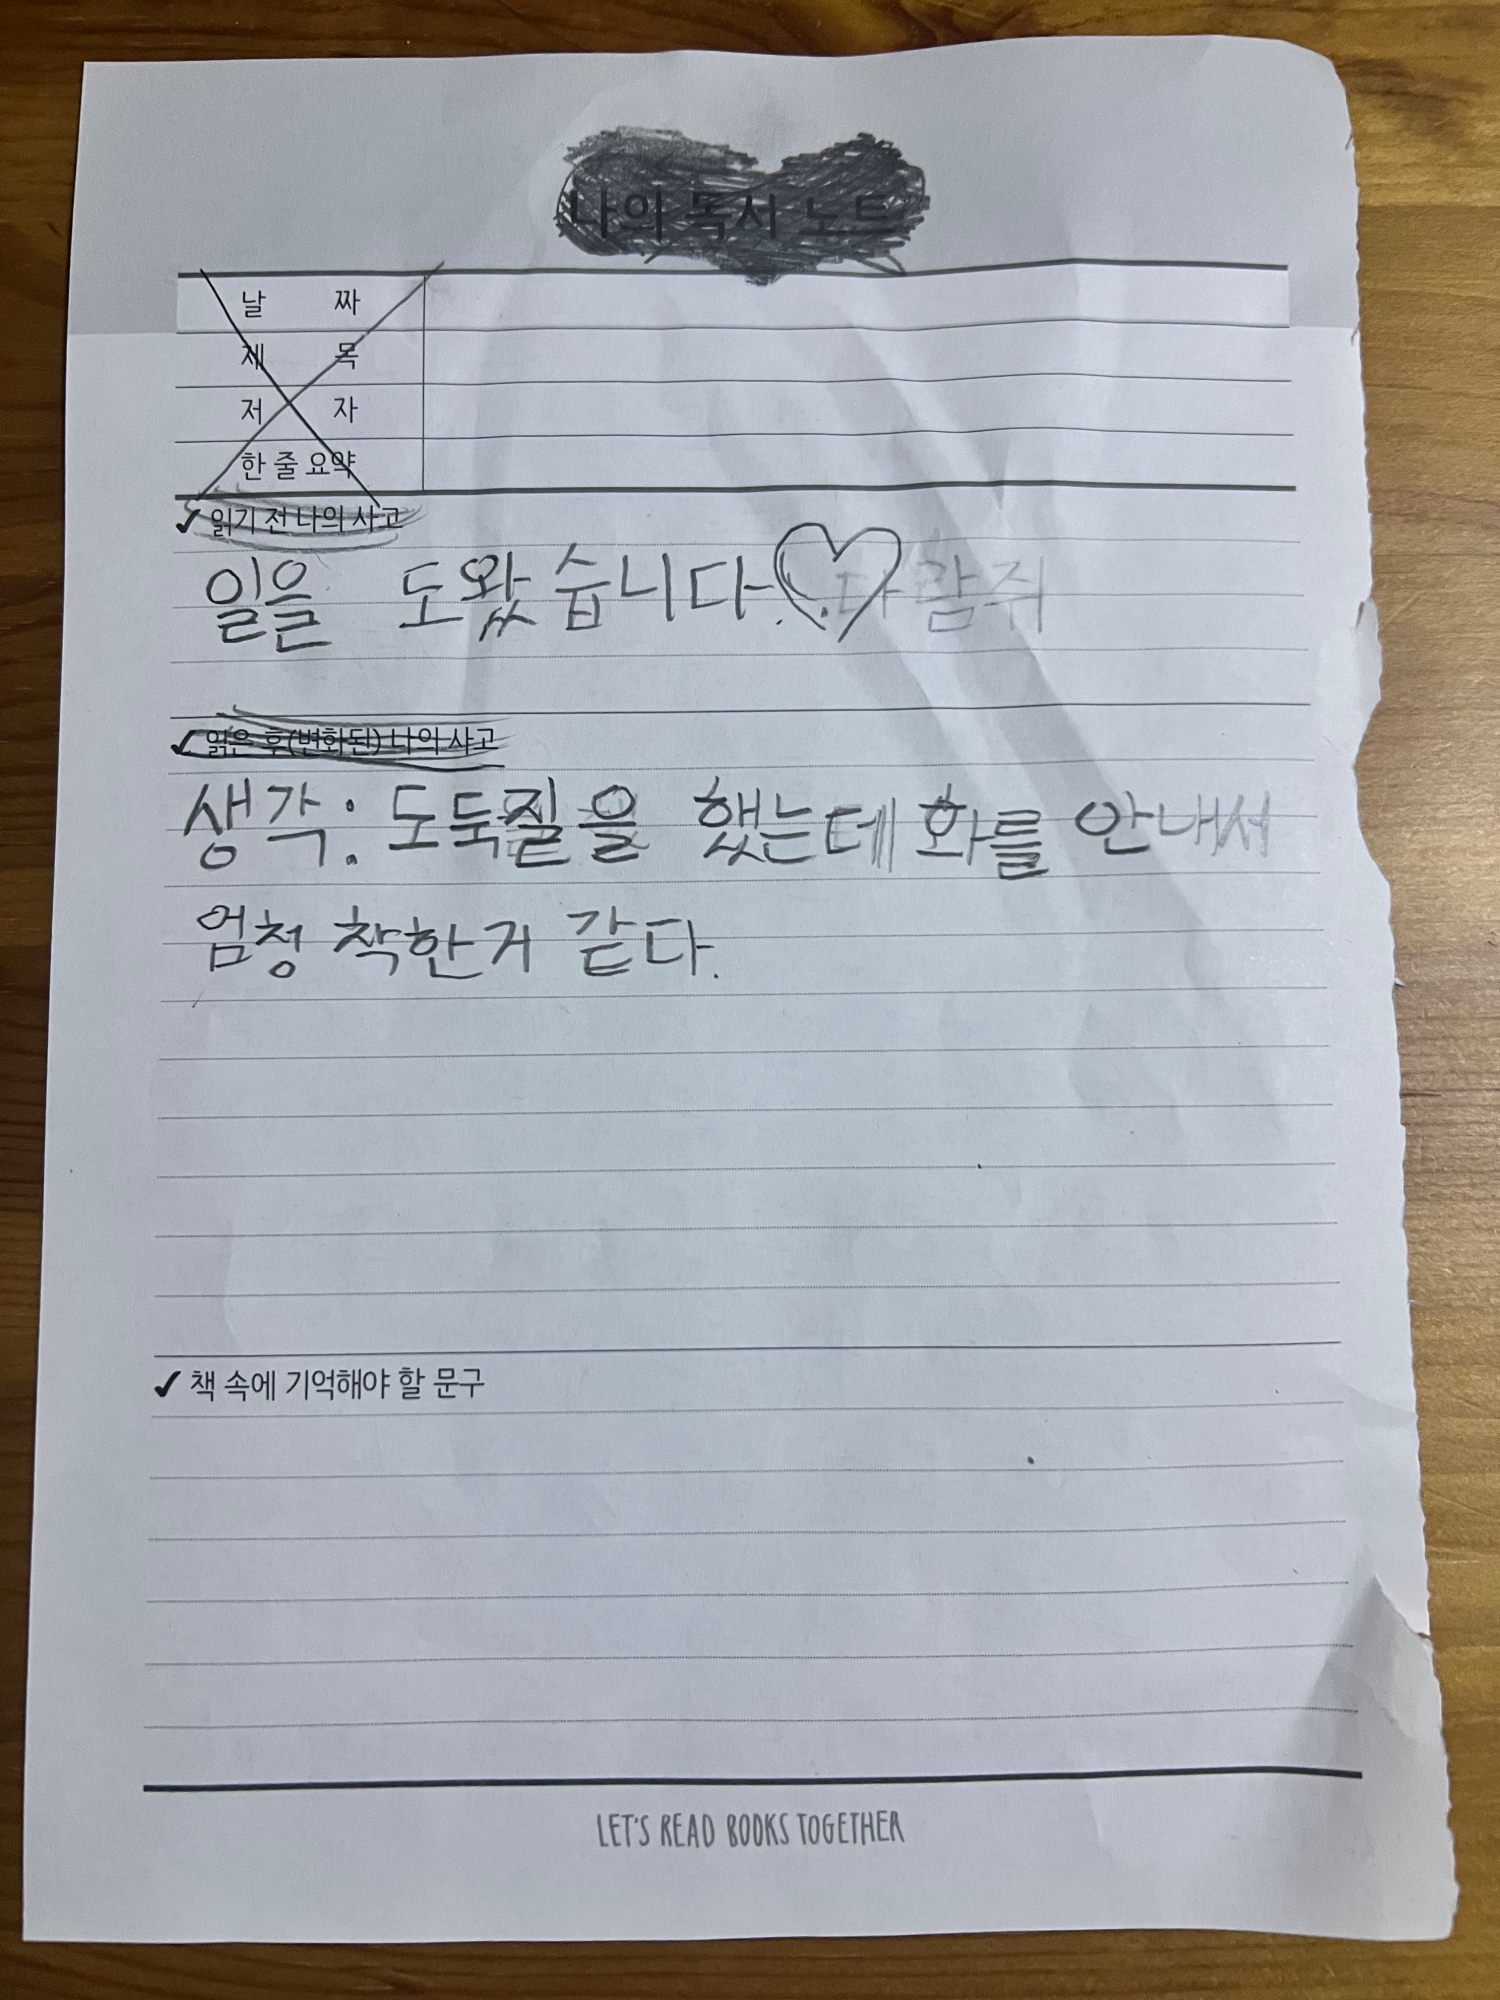 나의 독서 노트
날 짜
제 목
저 자
한 줄 요약
✓ 읽기 전 나의 사고
일을 도왔습니다. 다람쥐
✓ 읽은 후(변화된) 나의 사고
생각: 도둑질을 했는데 화를 안내서
엄청 착한거 같다.
✓ 책 속에 기억해야 할 문구
LET'S READ BOOKS TOGETHER